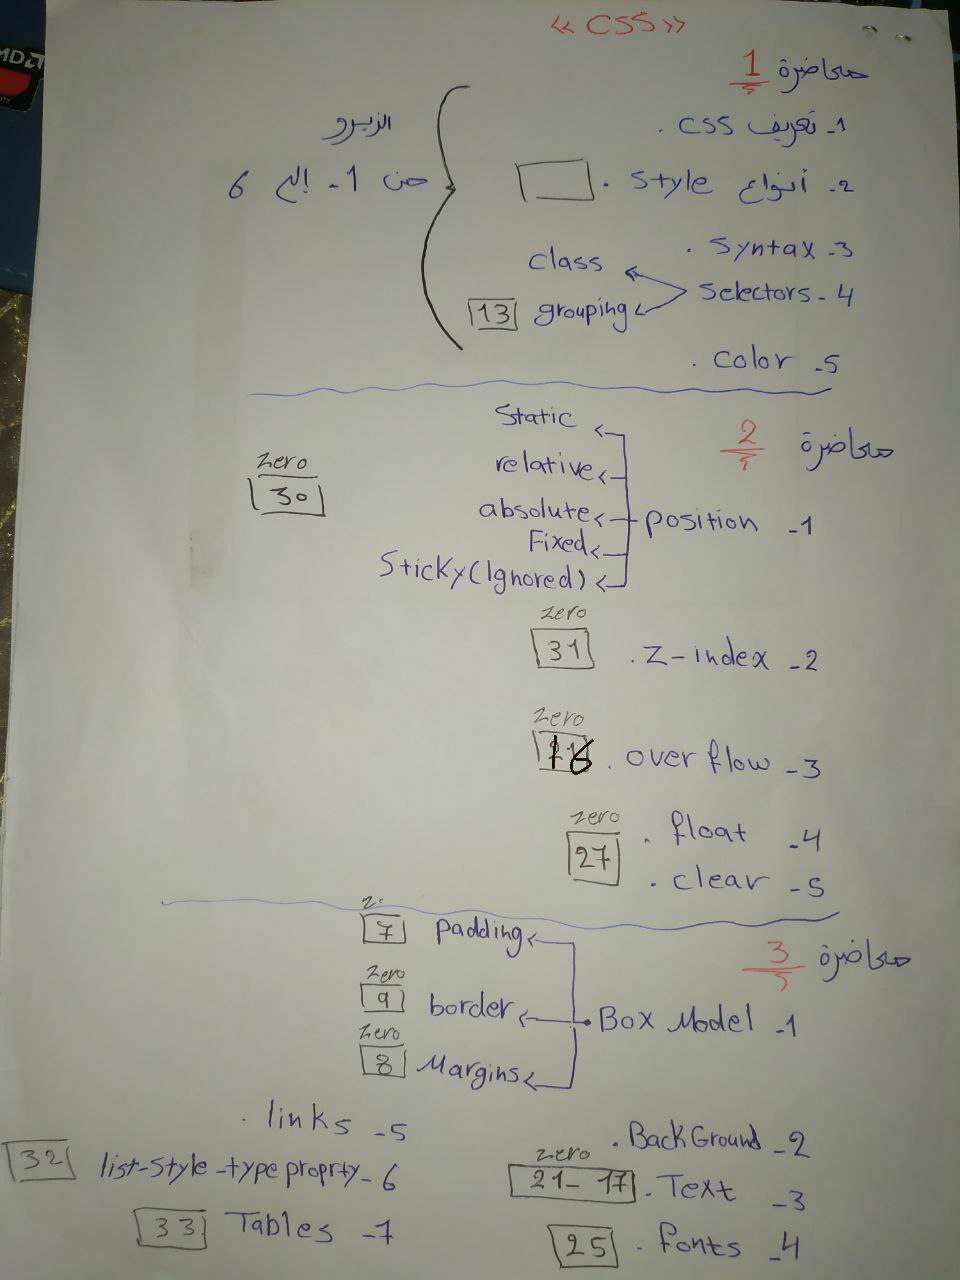 << CSS >>
محاضرة 1
1- تعريف CSS .
2- أنواع Style .
3- Syntax .
4- Selectors
class
grouping 13
5- Color .
الزيرو
من 1 - إلى 6
محاضرة 2
1- Position
Static
relative
absolute
Fixed
Sticky (Ignored)
zero
30
zero
2- Z-index . 31
zero
3- over flow . 16
zero
4- float .
27
5- clear .
محاضرة 3
1- Box Model
z.
Padding 7
zero
border 9
zero
Margins 8
2- BackGround .
zero
3- Text . 21-17
4- fonts . 25
5- links .
6- list-style-type proprty 32
7- Tables 33
MD